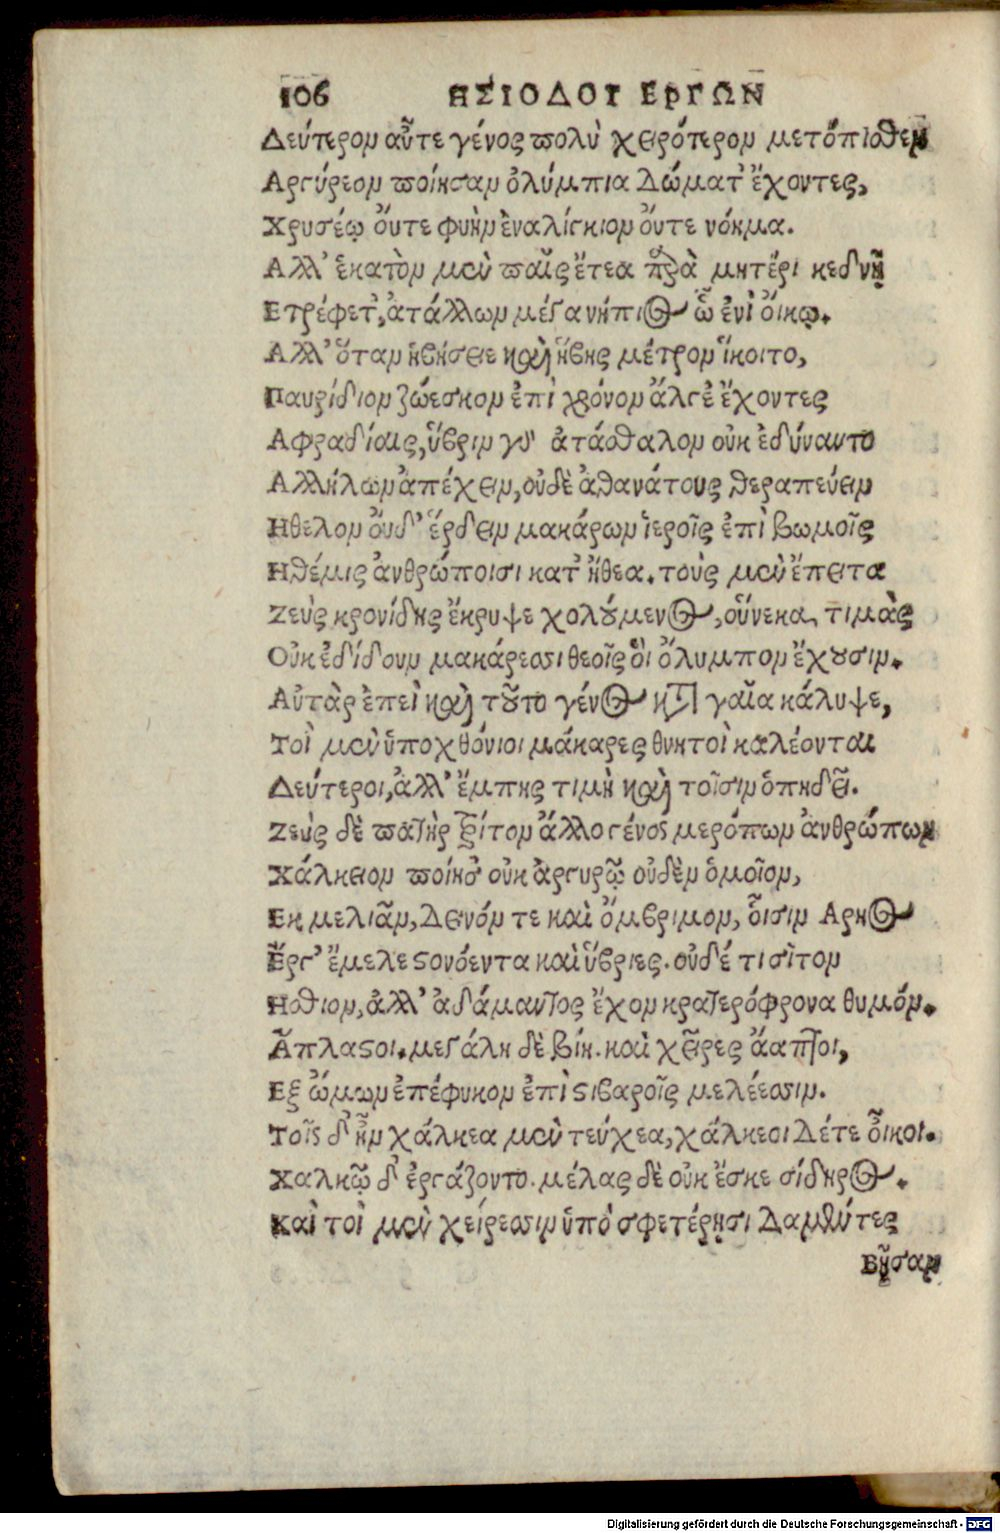 106 ΗΣΙΟΔΟΥ ΕΡΓΩΝ
Δεύτερον αὖτε γένος πολὺ χειρότερον μετόπισθεν
Αργύρεον ποίησαν ὀλύμπια δώματ' ἔχοντες,
Χρυσέῳ οὔτε φυὴν ἐναλίγκιον οὔτε νόημα.
Αλλ' ἑκατὸν μὲν παῖς ἔτεα παρὰ μητέρι κεδνῇ
Ετρέφετ', ἀτάλλων μέγα νήπιος ᾧ ἐνὶ οἴκῳ.
Αλλ' ὅταν ἡβήσειε καὶ ἥβης μέτρον ἵκοιτο,
Παυρίδιον ζώεσκον ἐπὶ χρόνον ἄλγε' ἔχοντες
Αφραδίαις, ὕβριν γὰρ ἀτάσθαλον οὐκ ἐδύναντο
Αλλήλων ἀπέχειν, οὐδὲ ἀθανάτους θεραπεύειν
Ηθελον οὐδ' ἕρδειν μακάρων ἱεροῖς ἐπὶ βωμοῖς
Η θέμις ἀνθρώποισι κατ' ἤθεα. τοὺς μὲν ἔπειτα
Ζεὺς κρονίδης ἔκρυψε χολούμενος, οὕνεκα τιμὰς
Οὐκ ἐδίδουν μακάρεσσι θεοῖς ὃι ὄλυμπον ἔχουσιν.
Αὐτὰρ ἐπεὶ καὶ τοῦτο γένος κατὰ γαῖα κάλυψε,
Τοὶ μὲν ὑποχθόνιοι μάκαρες θνητοὶ καλέονται
Δεύτεροι, ἀλλ' ἔμπης τιμὴ καὶ τοῖσιν ὀπηδεῖ.
Ζεὺς δὲ πατὴρ τρίτον ἄλλο γένος μερόπων ἀνθρώπων
Χάλκειον ποίησ' οὐκ ἀργυρῷ οὐδὲν ὁμοῖον,
Εκ μελιᾶν, δεινόν τε καὶ ὄμβριμον, οἷσιν Αρηος
Ἔργ' ἔμελε στονόεντα καὶ ὕβριες. οὐδέ τι σῖτον
Ησθιον, ἀλλ' ἀδάμαντος ἔχον κρατερόφρονα θυμόν.
Ἄπλαστοι. μεγάλη δὲ βίη. καὶ χεῖρες ἄαπτοι,
Εξ ὤμων ἐπέφυκον ἐπὶ στιβαροῖς μελέεσσιν.
Τοῖς δ' ἦν χάλκεα μὲν τεύχεα, χάλκεοι δέ τε οἶκοι.
Χαλκῷ δ' ἐργάζοντο. μέλας δὲ οὐκ ἔσκε σίδηρος.
Καὶ τοὶ μὲν χείρεσσιν ὑπὸ σφετέρῃσι δαμέντες
Βῆσαν
Digitalisierung gefördert durch die Deutsche Forschungsgemeinschaft - DFG